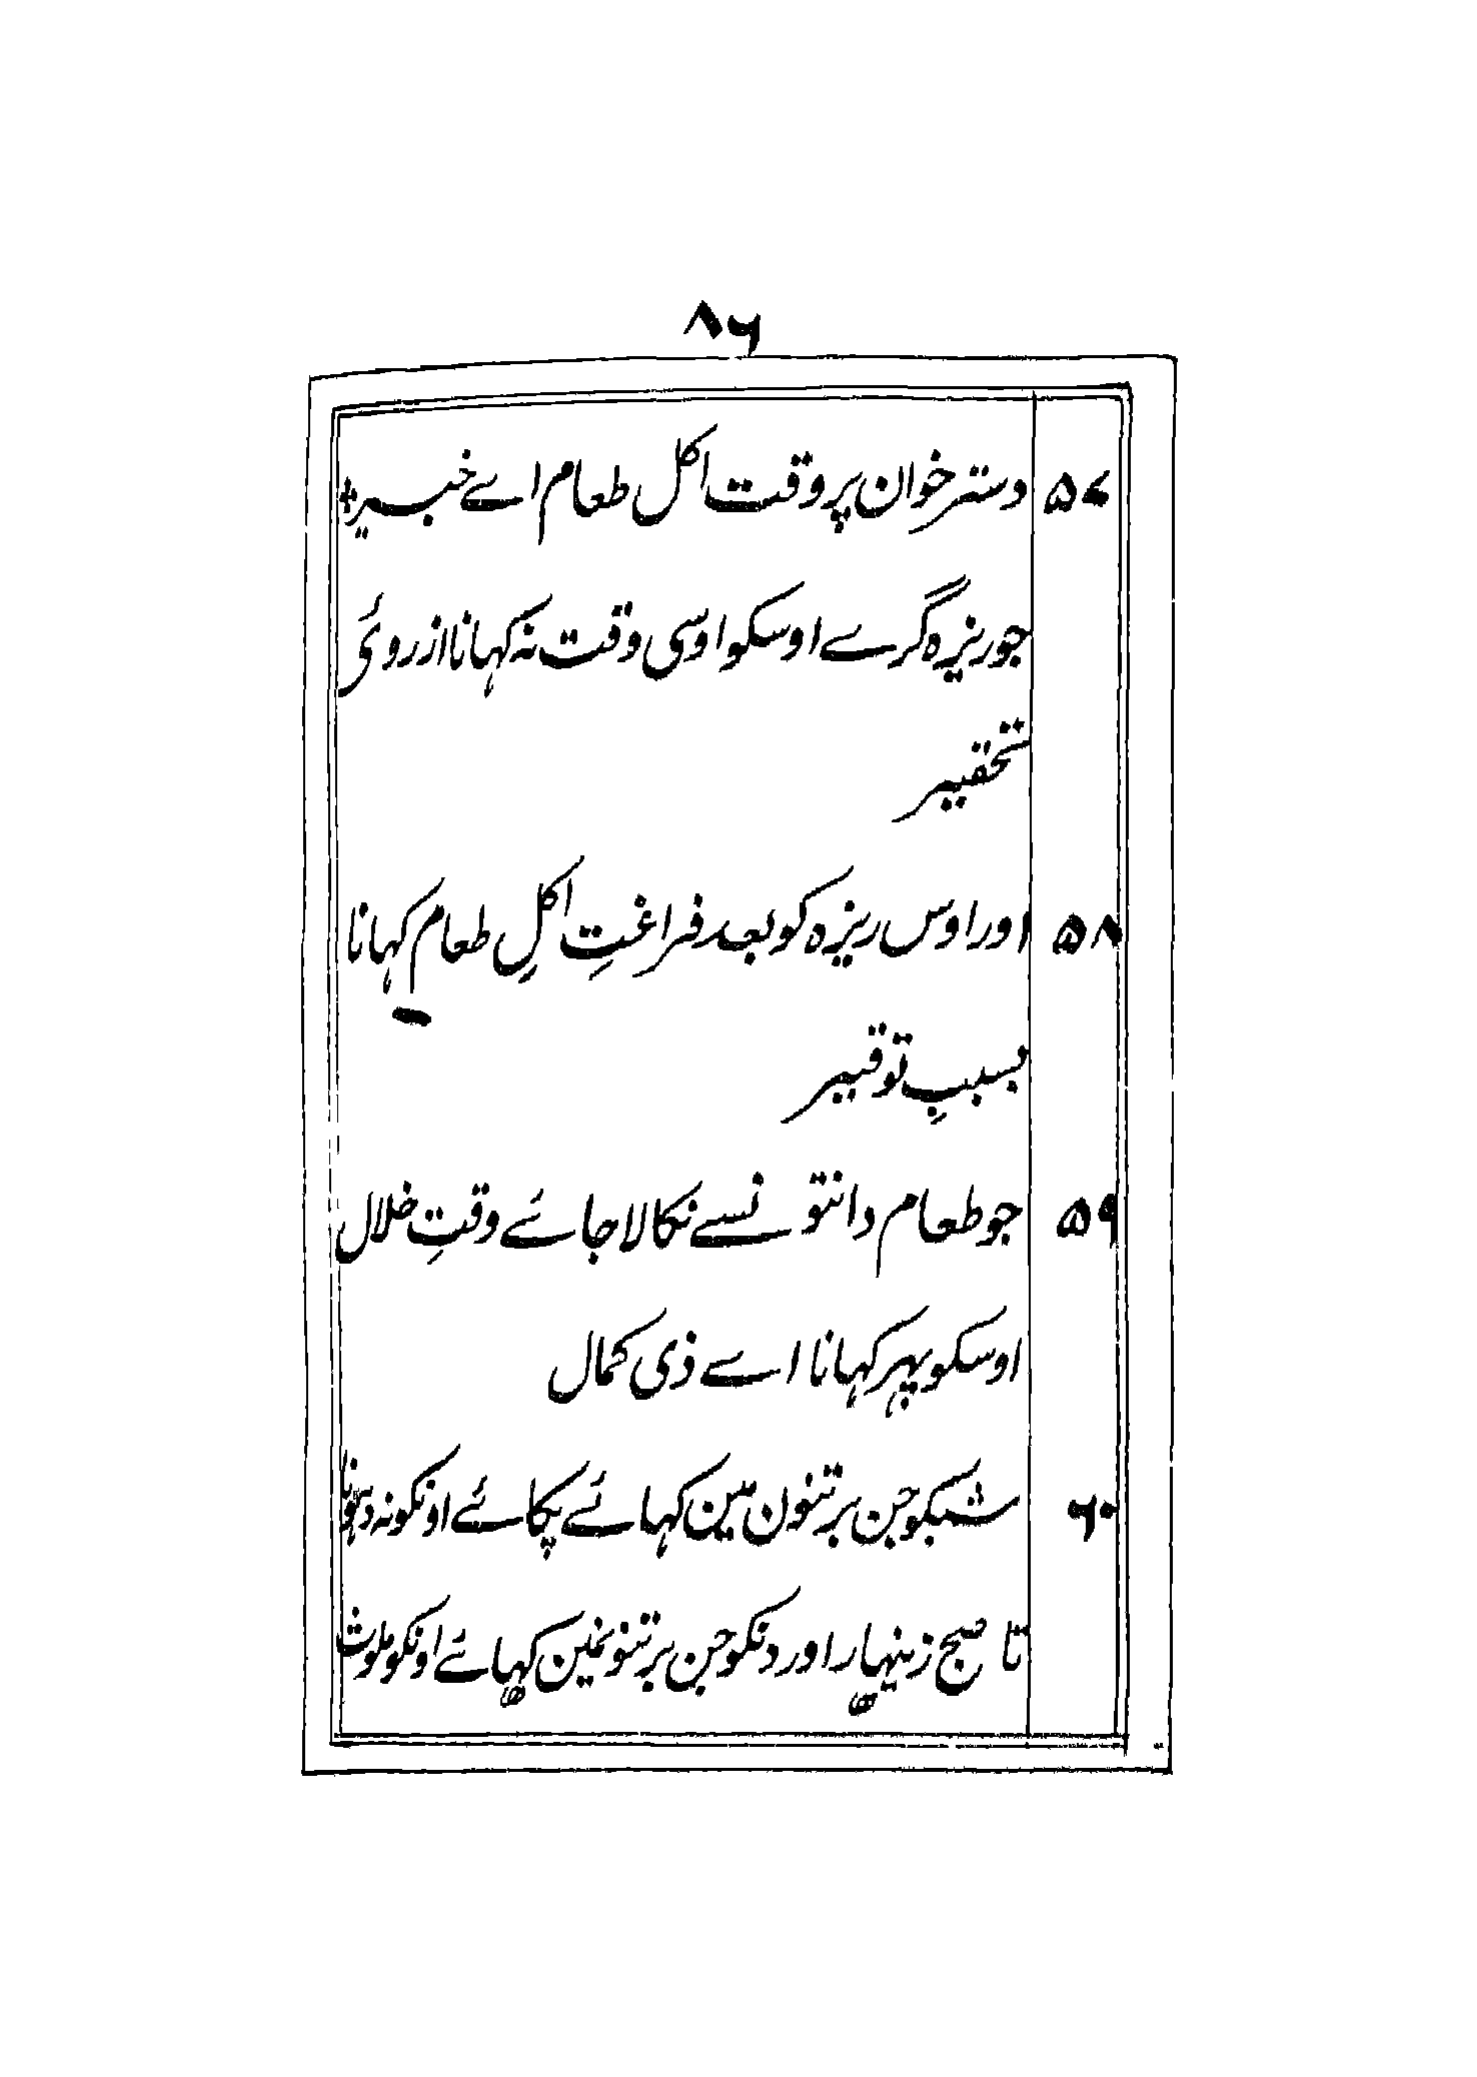 ۸۶
۵۷ دسترخوان پر وقت اکل طعام اے خبیر
جو ریزہ گرے اوسکو اوسی وقت نہ کہانا از روئ
تحقیر
۵۸ اور اوس ریزہ کو بعد فراغتِ اکلِ طعام کہانا
بسببِ توقیر
۵۹ جو طعام دانتونسے نکالا جائے وقتِ خلال
اوسکو پہر کہانا اے ذی کمال
۶۰ شبکو جن برتنون مین کہائے پکائے اونکو نہ دہونا
تا صبح زینہار اور دنکو جن برتنونمین کہائے اونکو ملوث